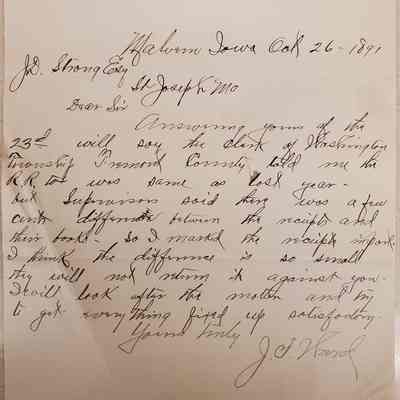 Malvern Iowa Oct 26 - 1891
J.D. Strong Esq
St Joseph Mo
Dear Sir
Answering yours of the
23d will say the clerk of Washington
Township Fremont County told me the
R.R. tax was same as last year -
but Supervisors said there was a few
cents difference between the receipts and
their books - So I marked the receipts
I think the difference is so small
they will not return it against you -
I will look after the matter and try
to get everything fixed up satisfactory.
Yours truly